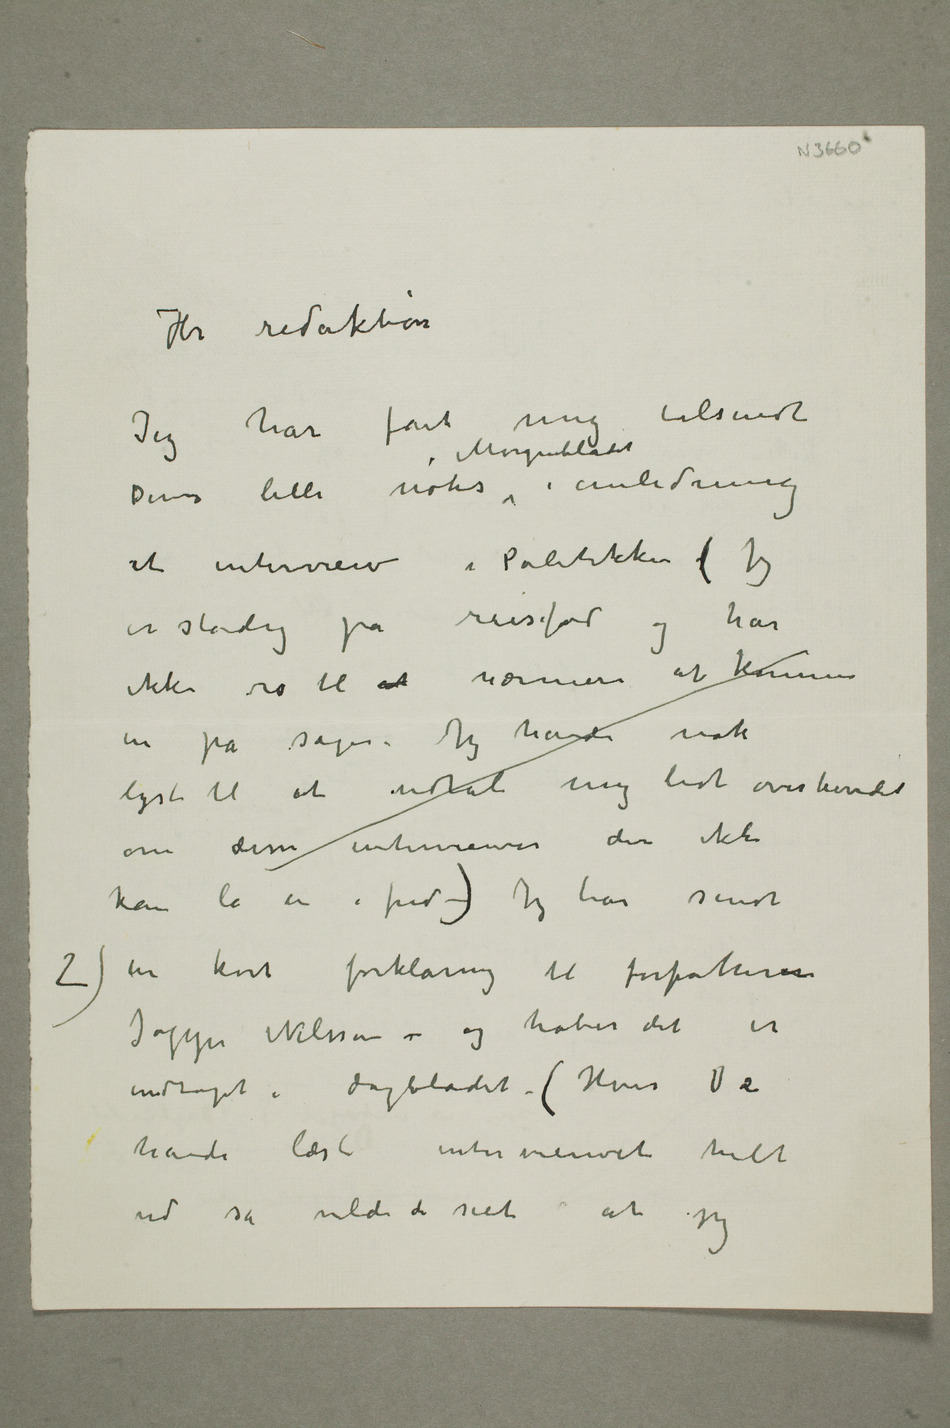 N3660
Hr redaktiør
Jeg har fåt mig tilsendt
i Morgenbladet
Deres lille notis i anledning
et interview i Politikken ( Jg
er stadig på reisefod og har
ikke ro til at nærmere at komme
in på sagen. Jg havde nok
lyst til at udtale mig lidt overhovedet
om disse interviewer der ikke
kan la en i fred –) Jg har sendt
2) en kort forklaring til forfatteren
Jappe Nilssen – og håber det er
indtaget i dagbladet – ( Hvis De
havde læst interviewet helt
ud så vilde de seet at jeg